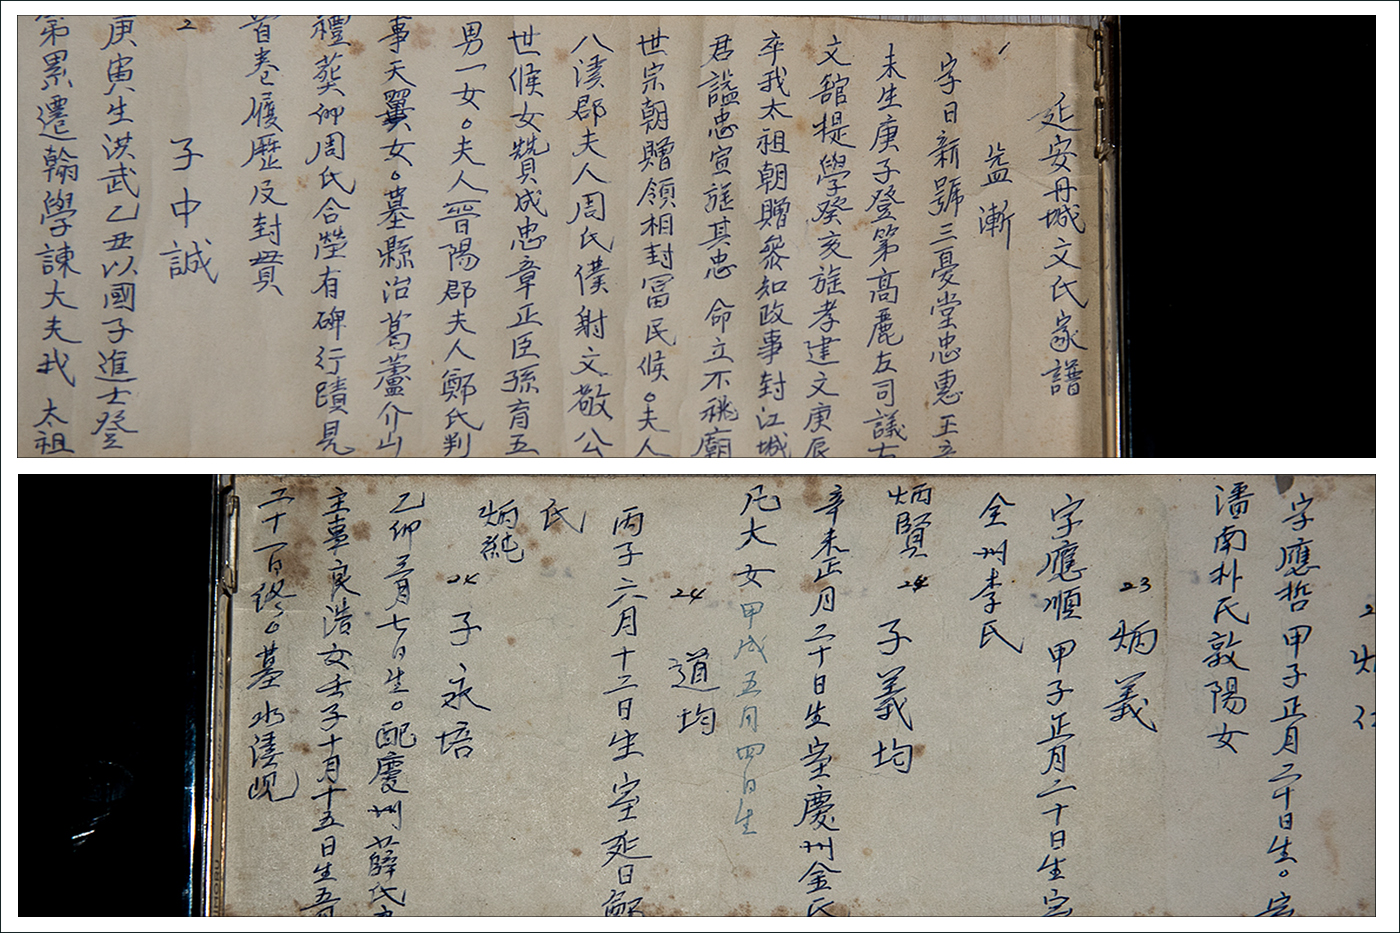 延安丹城文氏家譜
益漸
字日新號三憂堂忠惠王辛
未生庚子登第高麗左司議右
文館提學癸亥旌孝建文庚辰
卒我太祖朝贈叅知政事封江城
君諡忠宣旌其忠 命立不祧廟
世宗朝贈領相封冨民候。夫人
八溪郡夫人周氏僕射文敬公
世候女贊成忠章正臣孫育五
男一女。夫人晉陽郡夫人鄭氏判
事天翼女。墓縣治葛蘆介山
禮葵卯周氏合塋有碑行蹟見
首卷履歷及封貫
2
子中誠
庚寅生洪武乙丑以國子進士登
第累遷翰學諫大夫我 太祖
2
字應哲甲子正月二十日生。
潘南朴氏敦陽女
23
炳義
字應順甲子正月二十日生室
全州李氏
炳賢
24
子義均
辛未正月二十日生室慶州金氏
凡大女甲戌五月四日生
24
道均
丙子六月十二日生室延日鄭
氏
炳純
24
子永培
乙卯三月七日生。配慶州薛氏
主事良浩女壬子十月十五日生五月
二十一日終。墓水溪峴